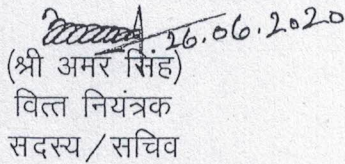 26.06.2020
(श्री अमर सिंह)
वित्त नियंत्रक
सदस्य/सचिव